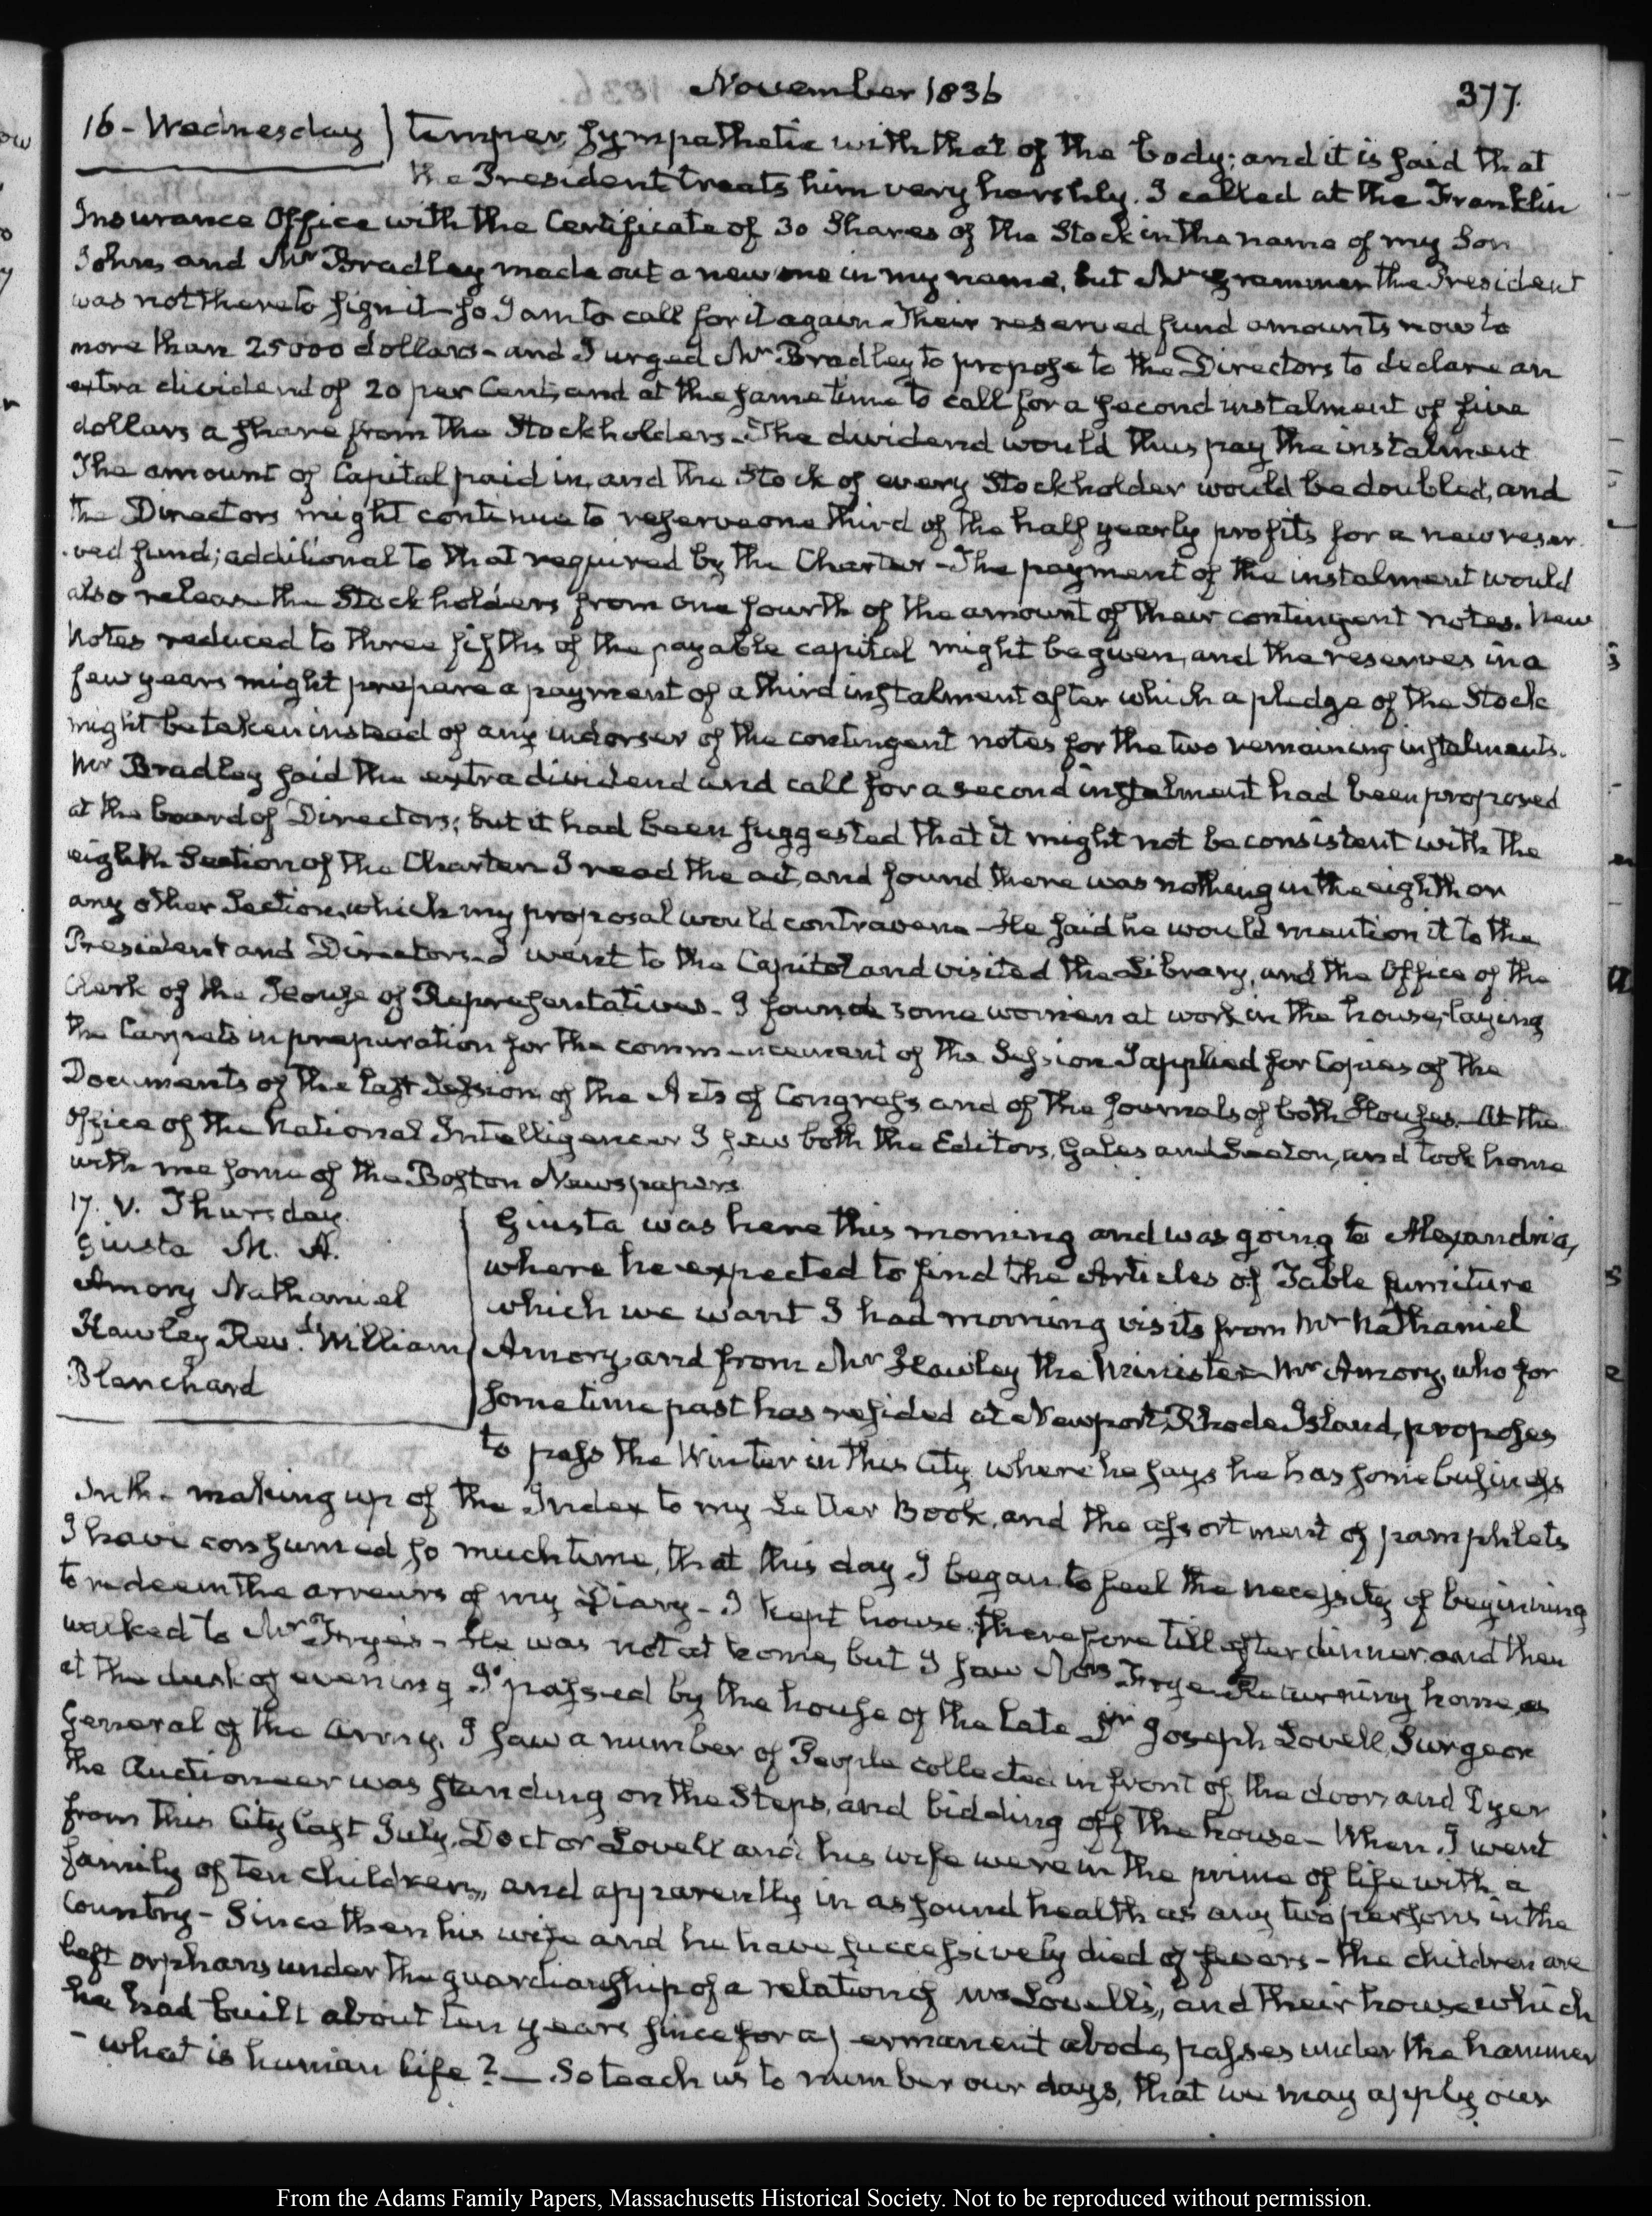 November 1836
377.
16 - Wednesday) temper, sympathetic with that of the body; and it is said that
the President treats him very harshly. I called at the Franklin
Insurance Office with the Certificate of 30 Shares of the Stock in the name of my Son
John, and Mr Bradley made out a new one in my name, but Mr Grammer the President
was not there to sign it - so I am to call for it again - Their reserved fund amounts now to
more than 25000 dollars - and I urged Mr Bradley to propose to the Directors to declare an
extra dividend of 20 per Cent, and at the same time to call for a second instalment of five
dollars a share from the Stockholders. The dividend would thus pay the instalment
The amount of Capital paid in, and the Stock of every Stockholder would be doubled, and
the Directors might continue to reserve one third of the half yearly profits for a new reser
ved fund; additional to that required by the Charter - The payment of the instalment would
also release the Stockholders from one fourth of the amount of their contingent notes. New
Notes reduced to three fifths of the payable capital might be given, and the reserves in a
few years might prepare a payment of a third instalment after which a pledge of the Stock
might be taken instead of any indorser of the contingent notes for the two remaining instalments.
Mr Bradley said the extra dividend and call for a second instalment had been proposed
at the board of Directors; but it had been suggested that it might not be consistent with the
eighth Section of the Charter. I read the act, and found there was nothing in the eighth or
any other Section, which my proposal would contravene - He said he would mention it to the
President and Directors. I went to the Capitol and visited the Library, and the Office of the
Clerk of the House of Representatives - I found some women at work in the house, laying
the Carpets in preparation for the commencement of the Session I applied for Copies of the
Documents of the last Session of the Acts of Congress and of the Journals of both Houses - At the
Office of the National Intelligencer I saw both the Editors, Gales and Seaton, and took home
with me some of the Boston Newspapers
17. V. Thursday.
Giusta M. A.
Amory Nathaniel
Hawley Revd. William
Blanchard
Giusta was here this morning and was going to Alexandria,
where he expected to find the Articles of Table furniture
which we want I had morning visits from Mr Nathaniel
Amory, and from Mr Hawley the Minister - Mr Amory, who for
some time past has resided at Newport, Rhode Island, proposes
to pass the Winter in this City where he says he has some business
In the making up of the Index to my Letter Book, and the assortment of pamphlets
I have consumed so much time, that this day I began to feel the necessity of beginning
to redeem the arrears of my Diary - I kept house therefore till after dinner, and then
walked to Mr Frye's - He was not at home, but I saw Mrs Frye - Returning home, as
at the dusk of evening I passed by the house of the late Dr Joseph Lovell, Surgeon
General of the Army. I saw a number of People collected in front of the door, and Dyer
the Auctioneer was standing on the Steps, and bidding off the house - When I went
from this City last July, Doctor Lovell and his wife were in the prime of life with a
family of ten children, and apparently in as sound health as any two persons in the
Country - Since then his wife and he have successively died of fevers - the children are
left orphans under the guardianship of a relation of Mrs Lovell's, and their house which
he had built about ten years since for a permanent abode, passes under the hammer
- what is human life? - So teach us to number our days, that we may apply our
From the Adams Family Papers, Massachusetts Historical Society. Not to be reproduced without permission.